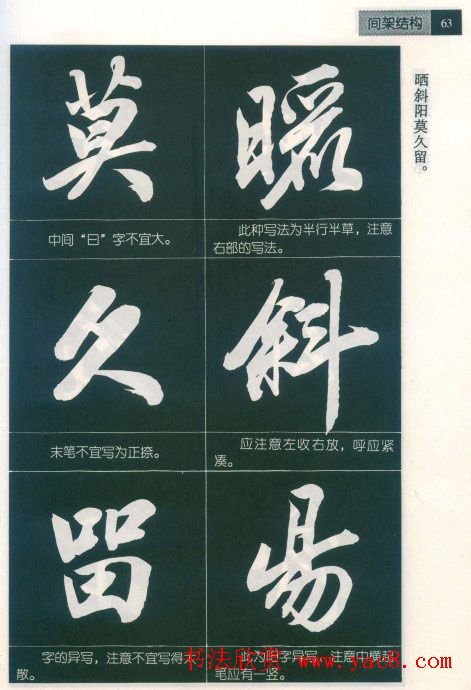 间架结构 63
晒斜阳莫久留。
曬
此种写法为半行半草，注意
右部的写法。
斜
应注意左收右放，呼应紧
凑。
昜
此为阳字异写，注意中横起
笔应有一竖。
莫
中间“日”字不宜大。
久
末笔不宜写为正捺。
㽞
字的异写，注意不宜写得
散。
书法欣赏 www.yac8.com